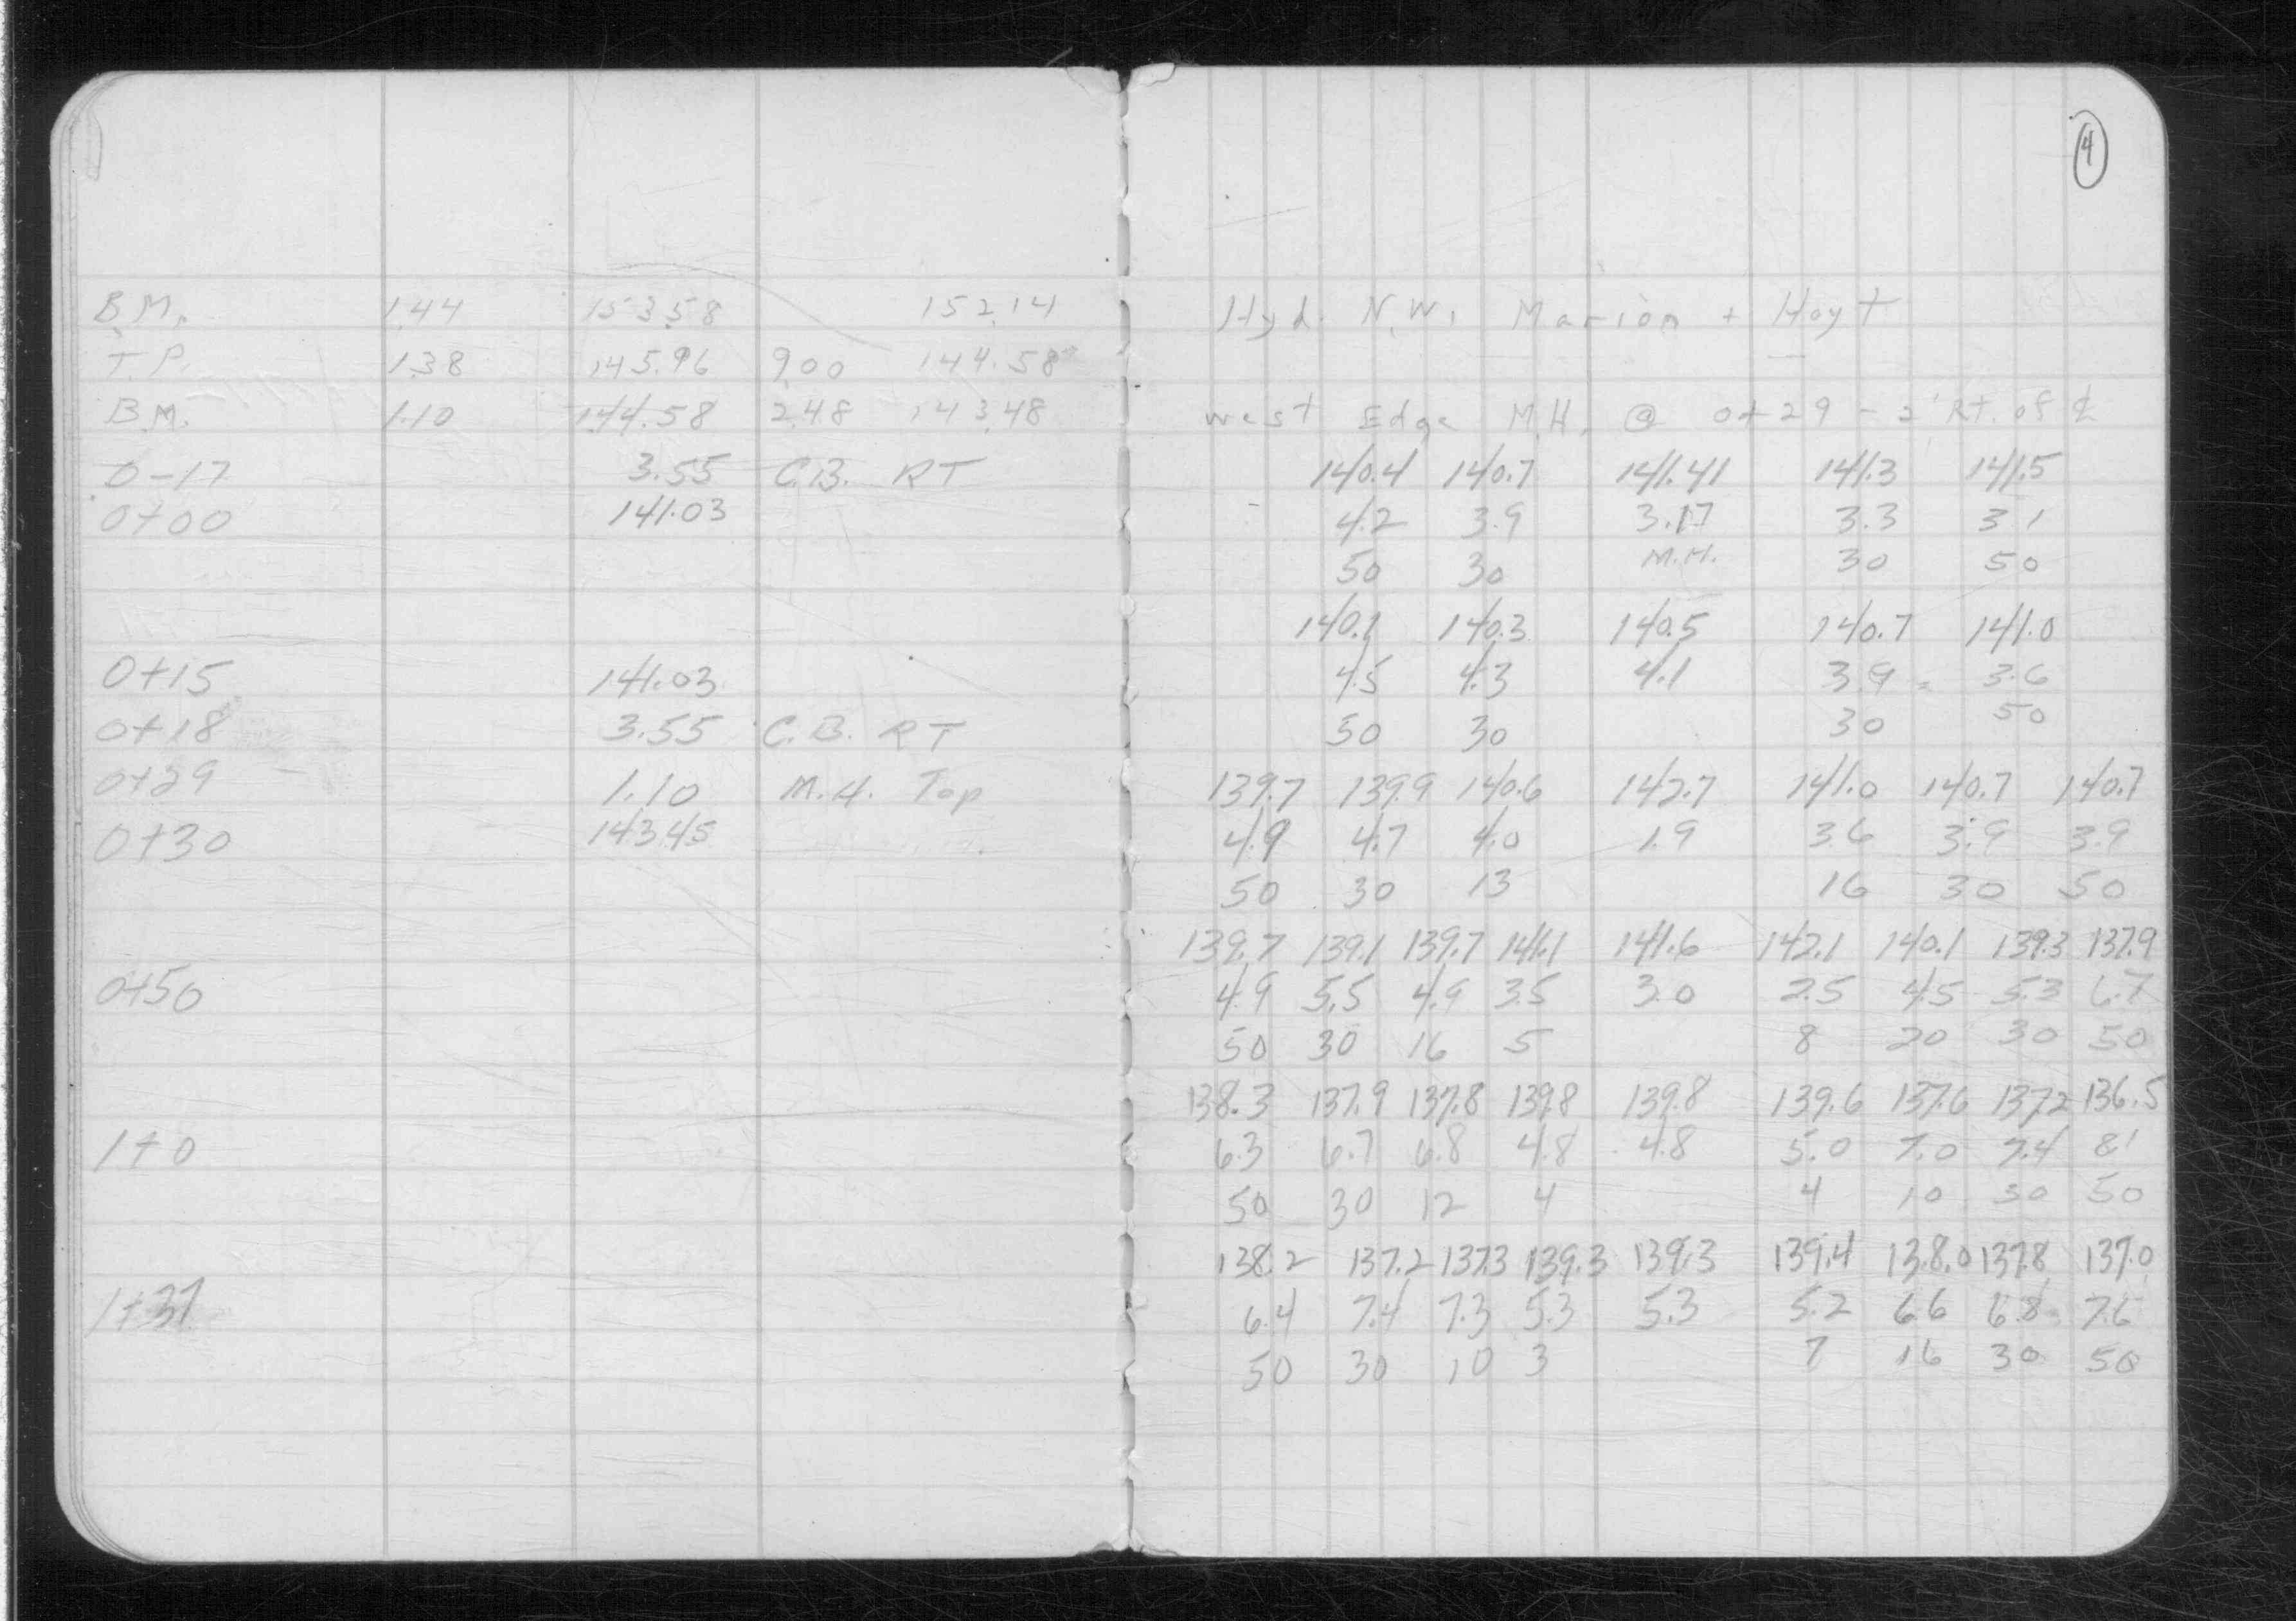 4
B.M. 1.44 153.58 152.14 Hyd. N.W. Marion + Hoyt
T.P. 1.38 145.96 9.00 144.58
B.M. 1.10 144.58 2.48 143.48 west Edge M.H. @ 0+29 - 2' Rt. of ℄
0-17 3.55 C.B. RT 140.4 140.7 141.41 141.3 141.5
0+00 141.03 4.2 3.9 3.17 3.3 3.1
50 30 M.H. 30 50
140.1 140.3 140.5 140.7 141.0
0+15 141.03 4.5 4.3 4.1 3.9 3.6
0+18 3.55 C.B. RT 50 30 30 50
0+29 1.10 M.H. Top 139.7 139.9 140.6 142.7 141.0 140.7 140.7
0+30 143.45 4.9 4.7 4.0 1.9 3.6 3.9 3.9
50 30 13 16 30 50
139.7 139.1 139.7 141.1 141.6 142.1 140.1 139.3 137.9
0+50 4.9 5.5 4.9 3.5 3.0 2.5 4.5 5.3 6.7
50 30 16 5 8 20 30 50
138.3 137.9 137.8 139.8 139.8 139.6 137.6 137.2 136.5
1+0 6.3 6.7 6.8 4.8 4.8 5.0 7.0 7.4 8.1
50 30 12 4 4 10 30 50
138.2 137.2 137.3 139.3 139.3 139.4 138.0 137.8 137.0
1+37 6.4 7.4 7.3 5.3 5.3 5.2 6.6 6.8 7.6
50 30 10 3 7 16 30 50